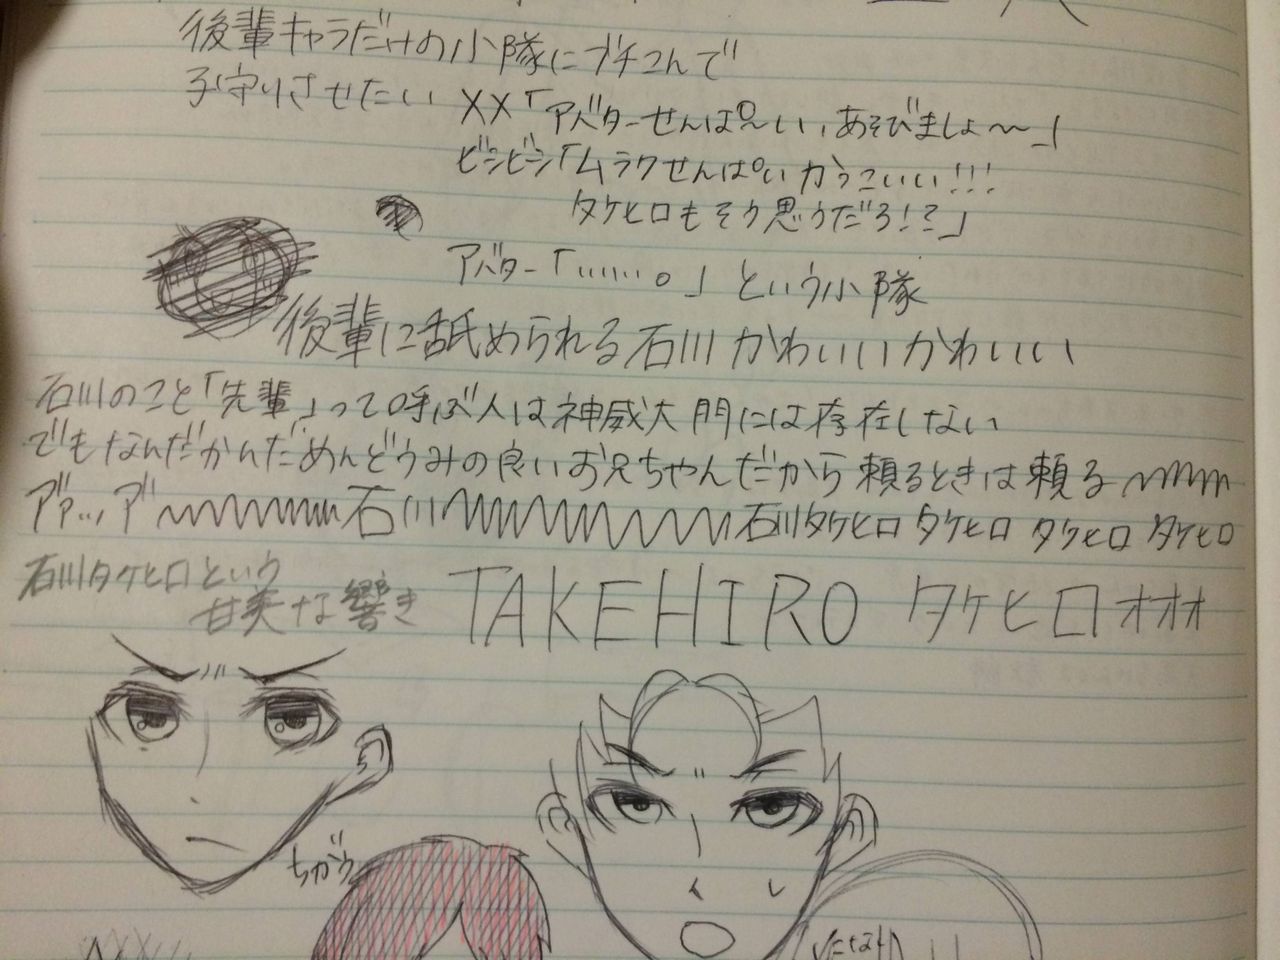 後輩キャラだけの小隊にブチこんで
子守りさせたい
××「アバターせんぱ〜い、あそびましょ〜」
ビシビシ「ムラクせんぱいかっこいい!!!
タケヒロもそう思うだろ!?」
アバター「……。」という小隊
後輩に舐められる石川かわいいかわいい
石川のこと「先輩」って呼ぶ人は神威大門には存在しない
でもなんだかんだめんどうみの良いお兄ちゃんだから頼るときは頼る
石川 石川タケヒロ タケヒロ タケヒロ タケヒロ
石川タケヒロという
甘美な響き
TAKEHIRO タケヒロオオォ
ちがう